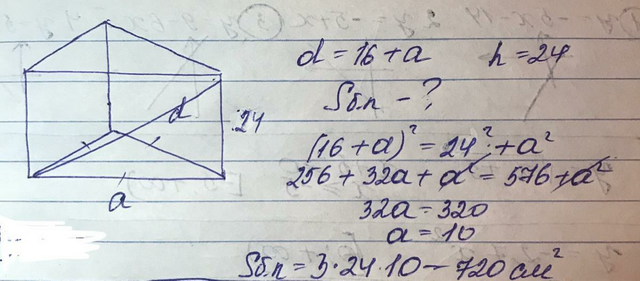 d = 16 + a h = 24
Sб.п - ?
(16 + a)² = 24² + a²
256 + 32a + a² = 576 + a²
32a = 320
a = 10
Sб.п = 3·24·10 = 720 см²
d
24
a